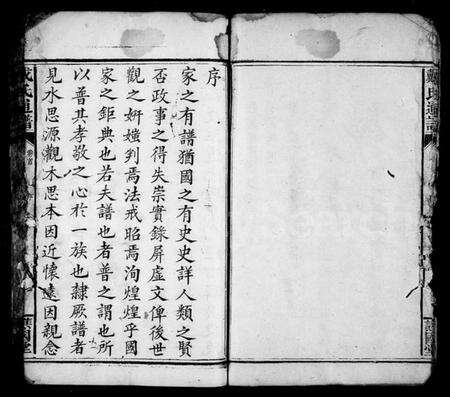 序
家之有譜猶國之有史史詳人類之賢
否政事之得失崇實錄屏虛文俾後世
觀之妍媸判焉法戒昭焉洵煌煌乎國
家之鉅典也若夫譜也者普之謂也所
以普其孝敬之心於一族也隸厥譜者
見水思源觀木思本因近懷遠因親念
戴氏通譜
卷首
戴氏通譜